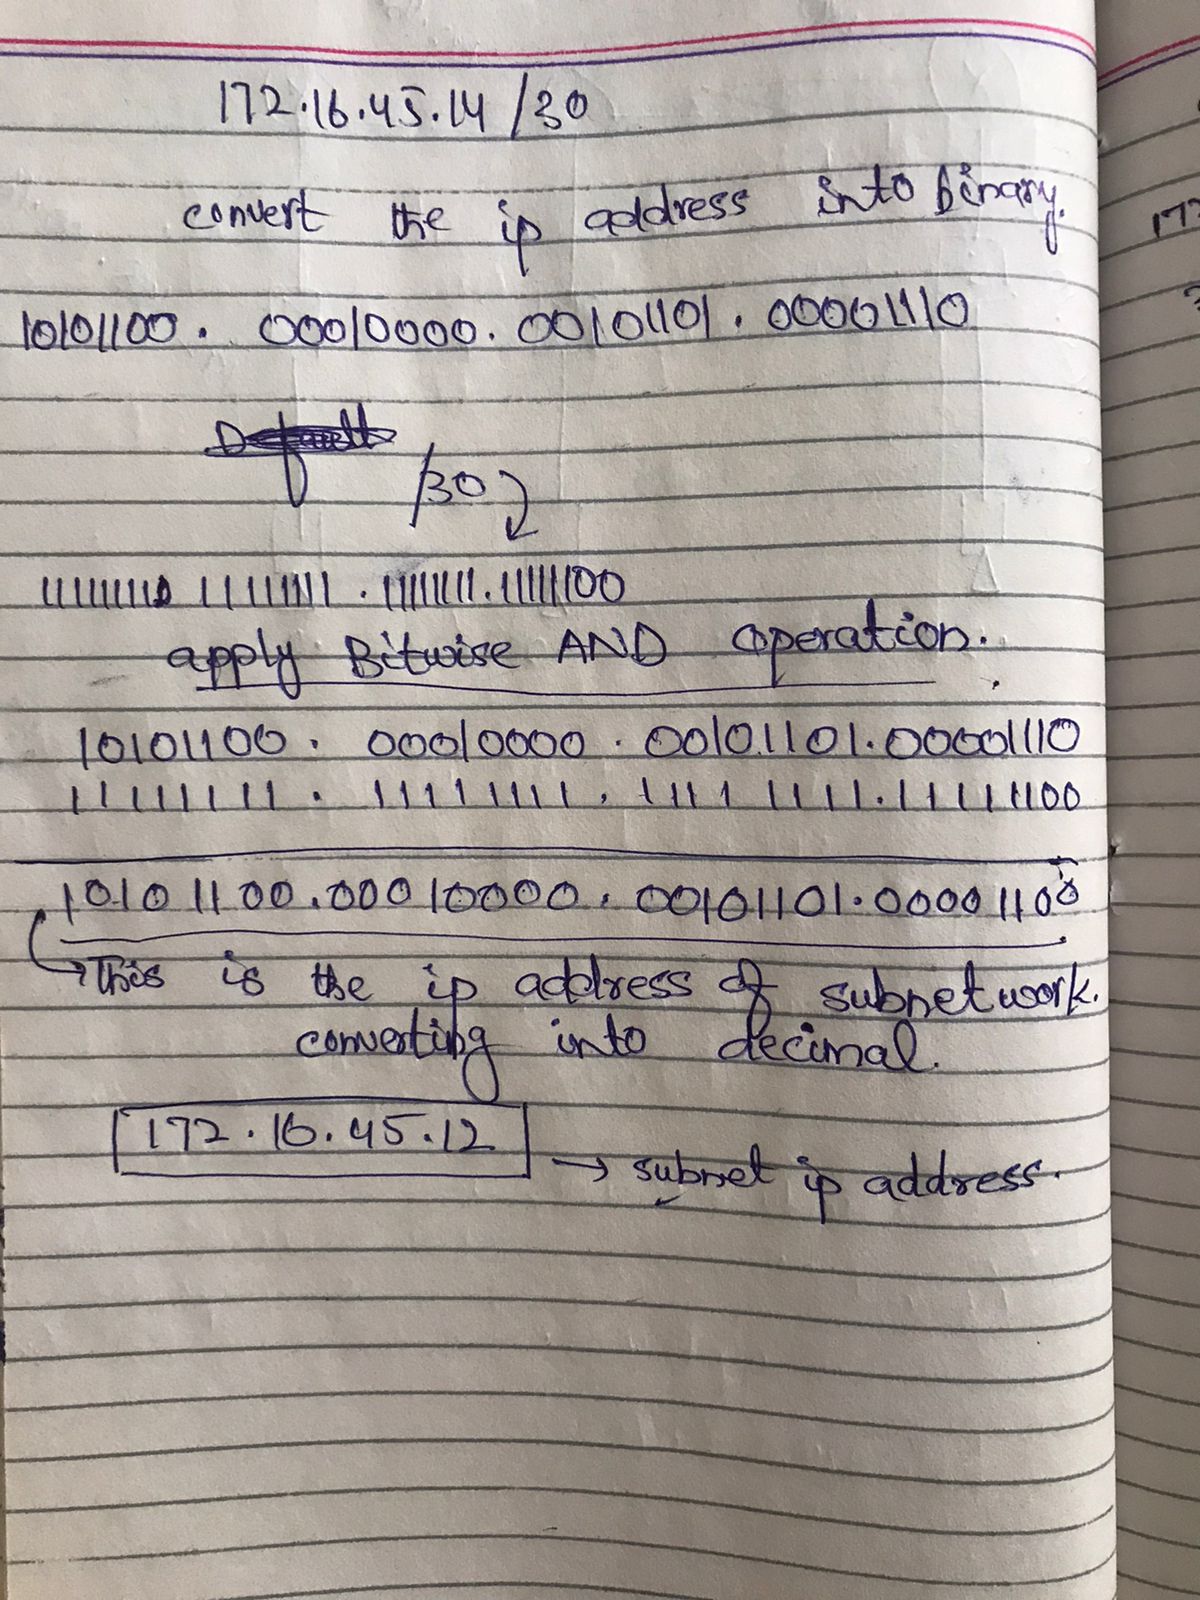 172.16.45.14 /30
convert the ip address into binary.
10101100. 00010000. 00101101. 00001110
/30
11111111 11111111 . 11111111. 11111100
apply Bitwise AND operation.
10101100. 00010000. 00101101. 00001110
11111111. 11111111. 11111111. 11111100
10101100. 00010000. 00101101. 00001100
This is the ip address of subnetwork.
converting into decimal.
172.16.45.12
→ subnet ip address.